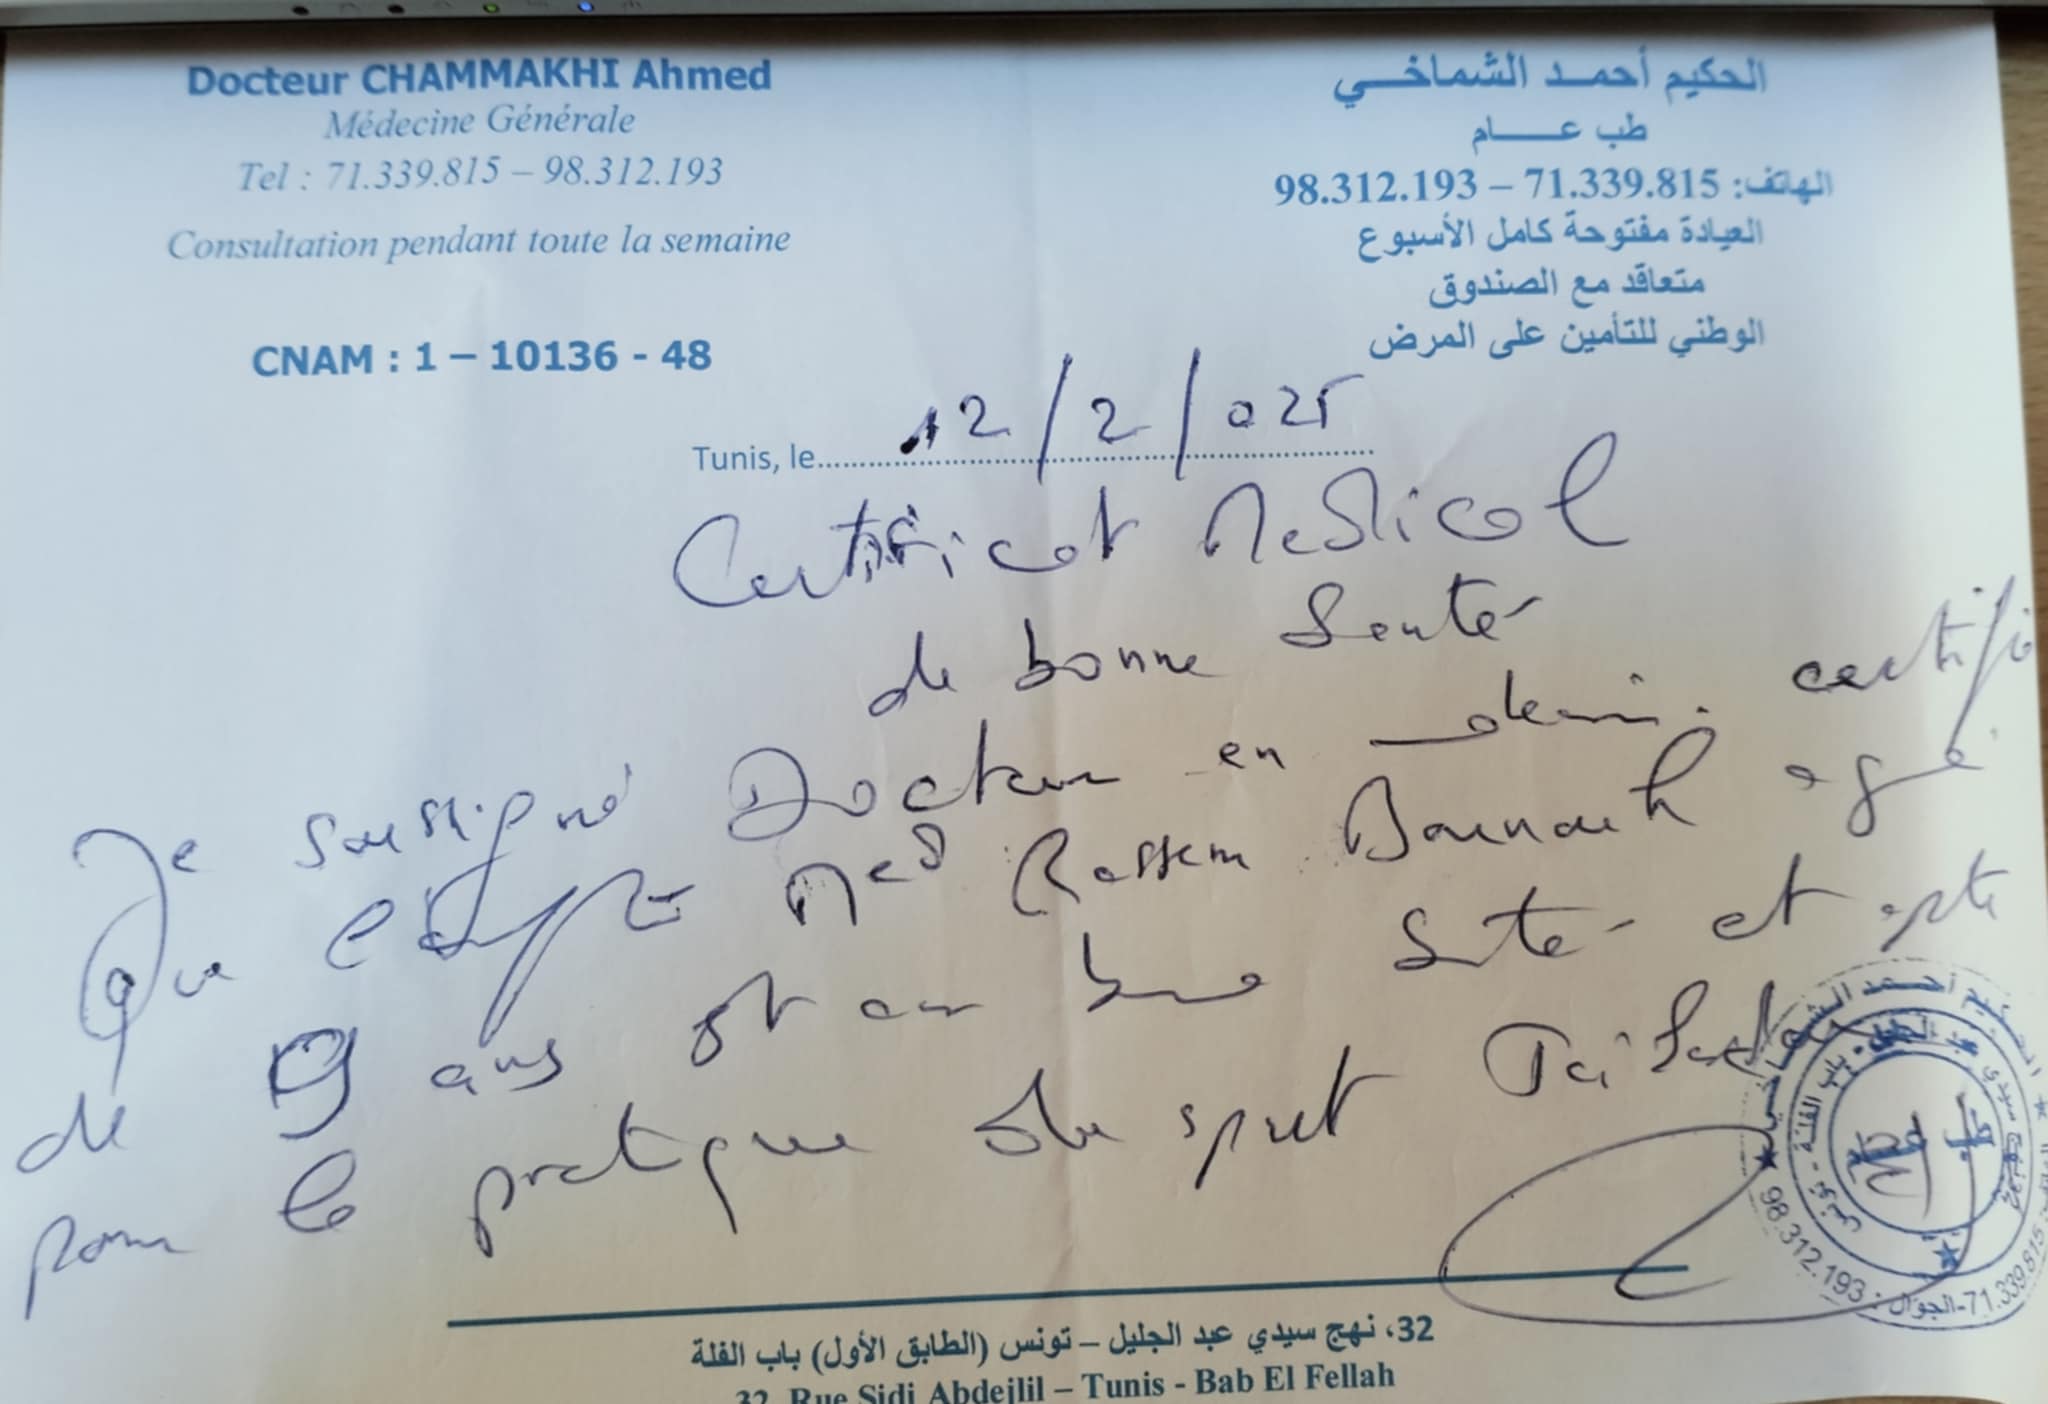 Docteur CHAMMAKHI Ahmed
Médecine Générale
Tel : 71.339.815 – 98.312.193
Consultation pendant toute la semaine
CNAM : 1 – 10136 - 48
الحكيم أحمد الشماخي
طب عام
الهاتف: 71.339.815 – 98.312.193
العيادة مفتوحة كامل الأسبوع
متعاقد مع الصندوق
الوطني للتأمين على المرض
Tunis, le 12/2/025
Certificat Medical
de bonne Santé
Je soussigné Docteur en certifi
que Med Rassem agé
de 9 ans est en bonne Santé et apte
pour la pratique du sport
98.312.193 : الجوال-71.339.815
32، نهج سيدي عبد الجليل – تونس (الطابق الأول) باب الفلة
32, Rue Sidi Abdejlil – Tunis - Bab El Fellah